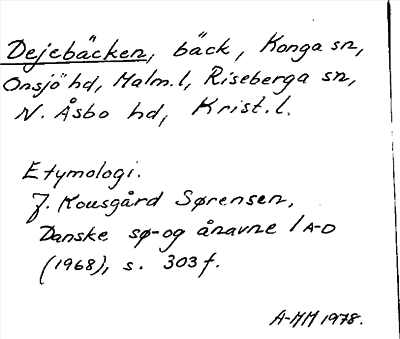 Dejebäcken, bäck, Konga sn,
Onsjö hd, Malm. l, Riseberga sn,
N. Åsbo hd, Krist. l.
Etymologi.
J. Kousgård Sørensen,
Danske sø- og ånavne 1 A-D
(1968), s. 303 f.
A-MM 1978.